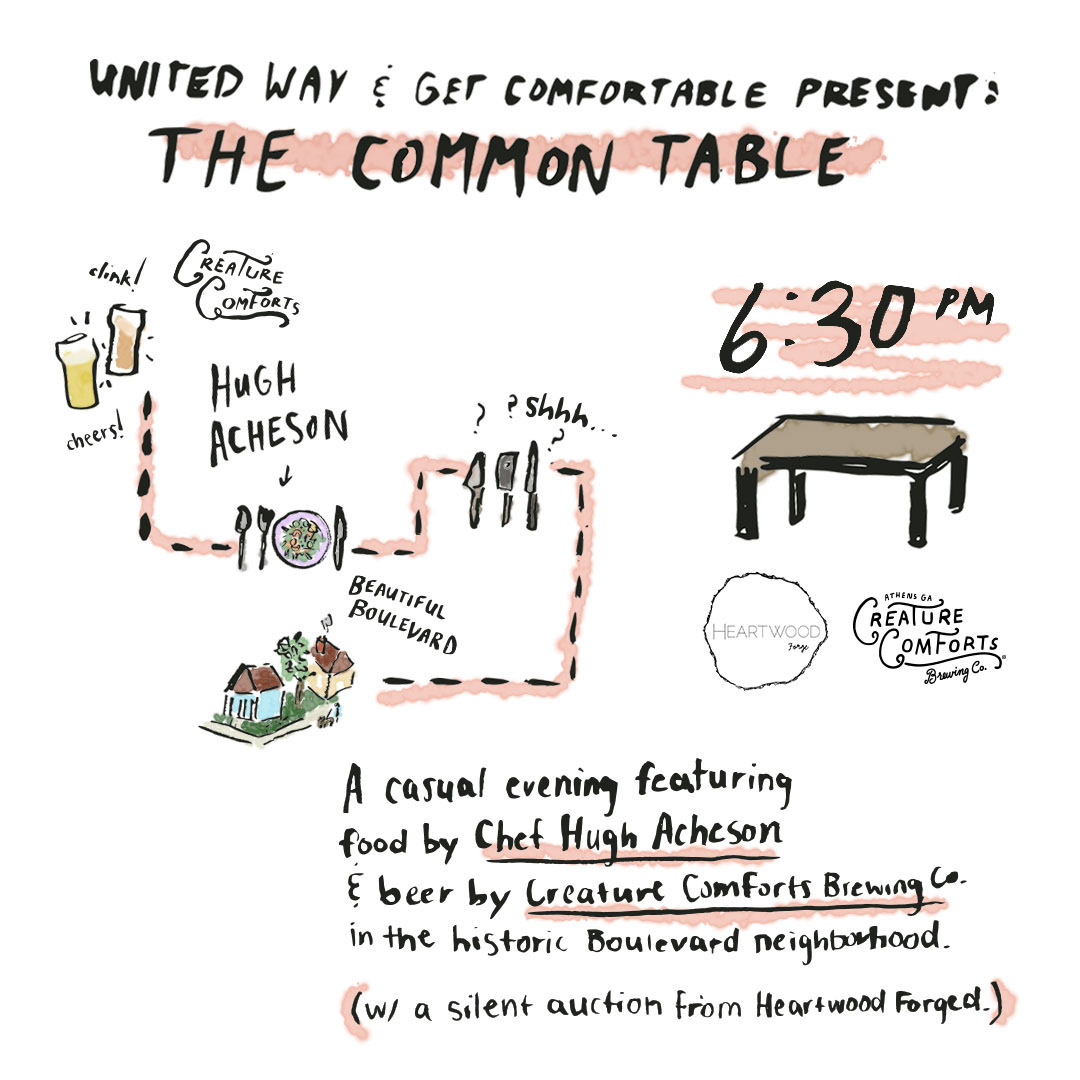 UNITED WAY & GET COMFORTABLE PRESENT:
THE COMMON TABLE
clink!
CREATURE
COMFORTS
cheers!
HUGH
ACHESON
? ? shhh... ?
6:30 PM
BEAUTIFUL
BOULEVARD
HEARTWOOD
Forge
ATHENS GA
CREATURE
COMFORTS
Brewing Co.
A casual evening featuring
food by Chef Hugh Acheson
& beer by Creature Comforts Brewing Co.
in the historic Boulevard neighborhood.
(w/ a silent auction from Heartwood Forged.)